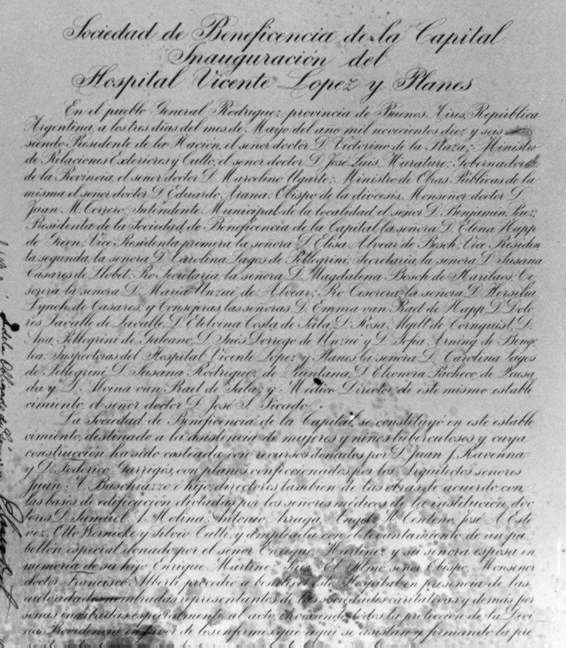 Sociedad de Beneficencia de la Capital
Inauguración del
Hospital Vicente Lopez y Planes
En el pueblo General Rodriguez, provincia de Buenos Aires, República
Argentina, a los tres días del mes de Mayo del año mil novecientos diez y seis
siendo Presidente de la Nación, el señor doctor D. Victorino de la Plaza; Ministro
de Relaciones Exteriores y Culto, el señor doctor D. José Luis Murature; Gobernador
de la Provincia, el señor doctor D. Marcelino Ugarte; Ministro de Obras Públicas de la
misma el señor doctor D. Eduardo Arana; Obispo de la diócesis, Monseñor doctor D.
Juan N. Terrero; Intendente Municipal de la localidad el señor D. Benjamin
Presidenta de la Sociedad de Beneficencia de la Capital, la señora D. Elena Napp
de Green; Vice Presidenta primera la señora D. Elisa Alvear de Bosch; Vice Presiden
ta segunda, la señora D. Carolina Lagos de Pellegrini; Secretaria la señora D. Susana
Casares de Llobet; Pro Secretaria, la señora D. Magdalena Bosch de Harilaos; Te
sorera la señora D. María Unzué de Alvear; Pro Tesorera, la señora D. Hersilia
Lynch de Casares, y Consejeras las señoras D. Emma van Prael de Napp, D. Dolo
res Lavalle de Lavalle, D. Etelvina Costa de Sala, D. Rosa de Tornquist, D.
Ana Pellegrini de Galeano, D. Inés Dorrego de Unzué y D. Sofía Arning de Beng
lea. Inspectoras del Hospital Vicente López y Planes, la señora D. Carolina Lagos
de Pellegrini, D. Susana Rodriguez de Quintana, D. Eleonora Pacheco de
da y D. van Prael de Salas, y Médico Director de este mismo estable
cimiento, el señor doctor D. José
La Sociedad de Beneficencia de la Capital, se constituyó en este estable
cimiento, destinado a la asistencia de mujeres y niños tuberculosos y cuya
construcción ha sido costeada con recursos donados por D. Juan J. Ravenna
y D. Federico Garrigós, con planos confeccionados por los Arquitectos señores
Juan A. Buschiazzo e hijo, directores tambien de las obras de acuerdo con
las bases de edificación dictadas por los señores médicos de la institución, doc
tores D. Samuel Molina, Antonio Centeno, José A. Este
vez, Otto Wernicke y Silvio Tatti, y ampliada con el levantamiento de un pa
bellón especial donado por el señor Enrique Martinez y su señora esposa en
memoria de su hijo Enrique Martinez El Ilmo. señor Obispo, Monseñor
doctor Francisco Alberti procedió a bendecir el Hospital en presencia de las
autoridades nombradas, representantes de las sociedades caritativas y demás per
sonas invitadas especialmente al acto, invocando todos la protección de la Divi
na Providencia en favor de los enfermos que aquí se asistan y firmando la pre